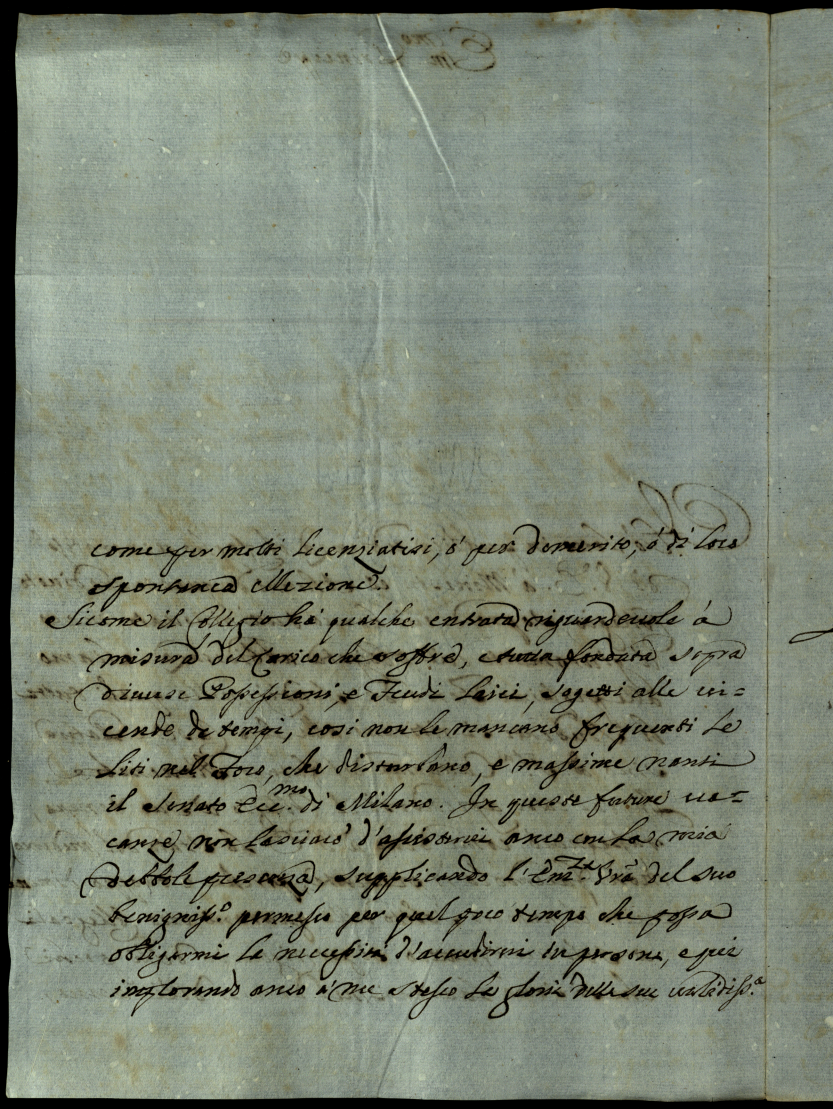 come per molti licenziatisi, ó per demerito, ó di loro
spontanea ellezione.
Sicome il Collegio há qualche entrata riguardevole á
misura del Carico che soffre, e tutta fondata sopra
diverse Possessioni, e Feudi laici, sogetti alle vi=
cende de tempi, cosi non le mancano frequenti le
liti nel Foro, che disturbano, e massime nanti
il Senato Ecc.mo di Milano. In queste future va=
canze non lasciaró d'assistervi anco con la mia
debbole presenza, supplicando l'Em.za Vra del suo
benigniss.o permesso per quel poco tempo che possa
obligarmi la necessitá d'accudirvi in persona, e qui
implorando anco á me stesso la delle sue validiss.e